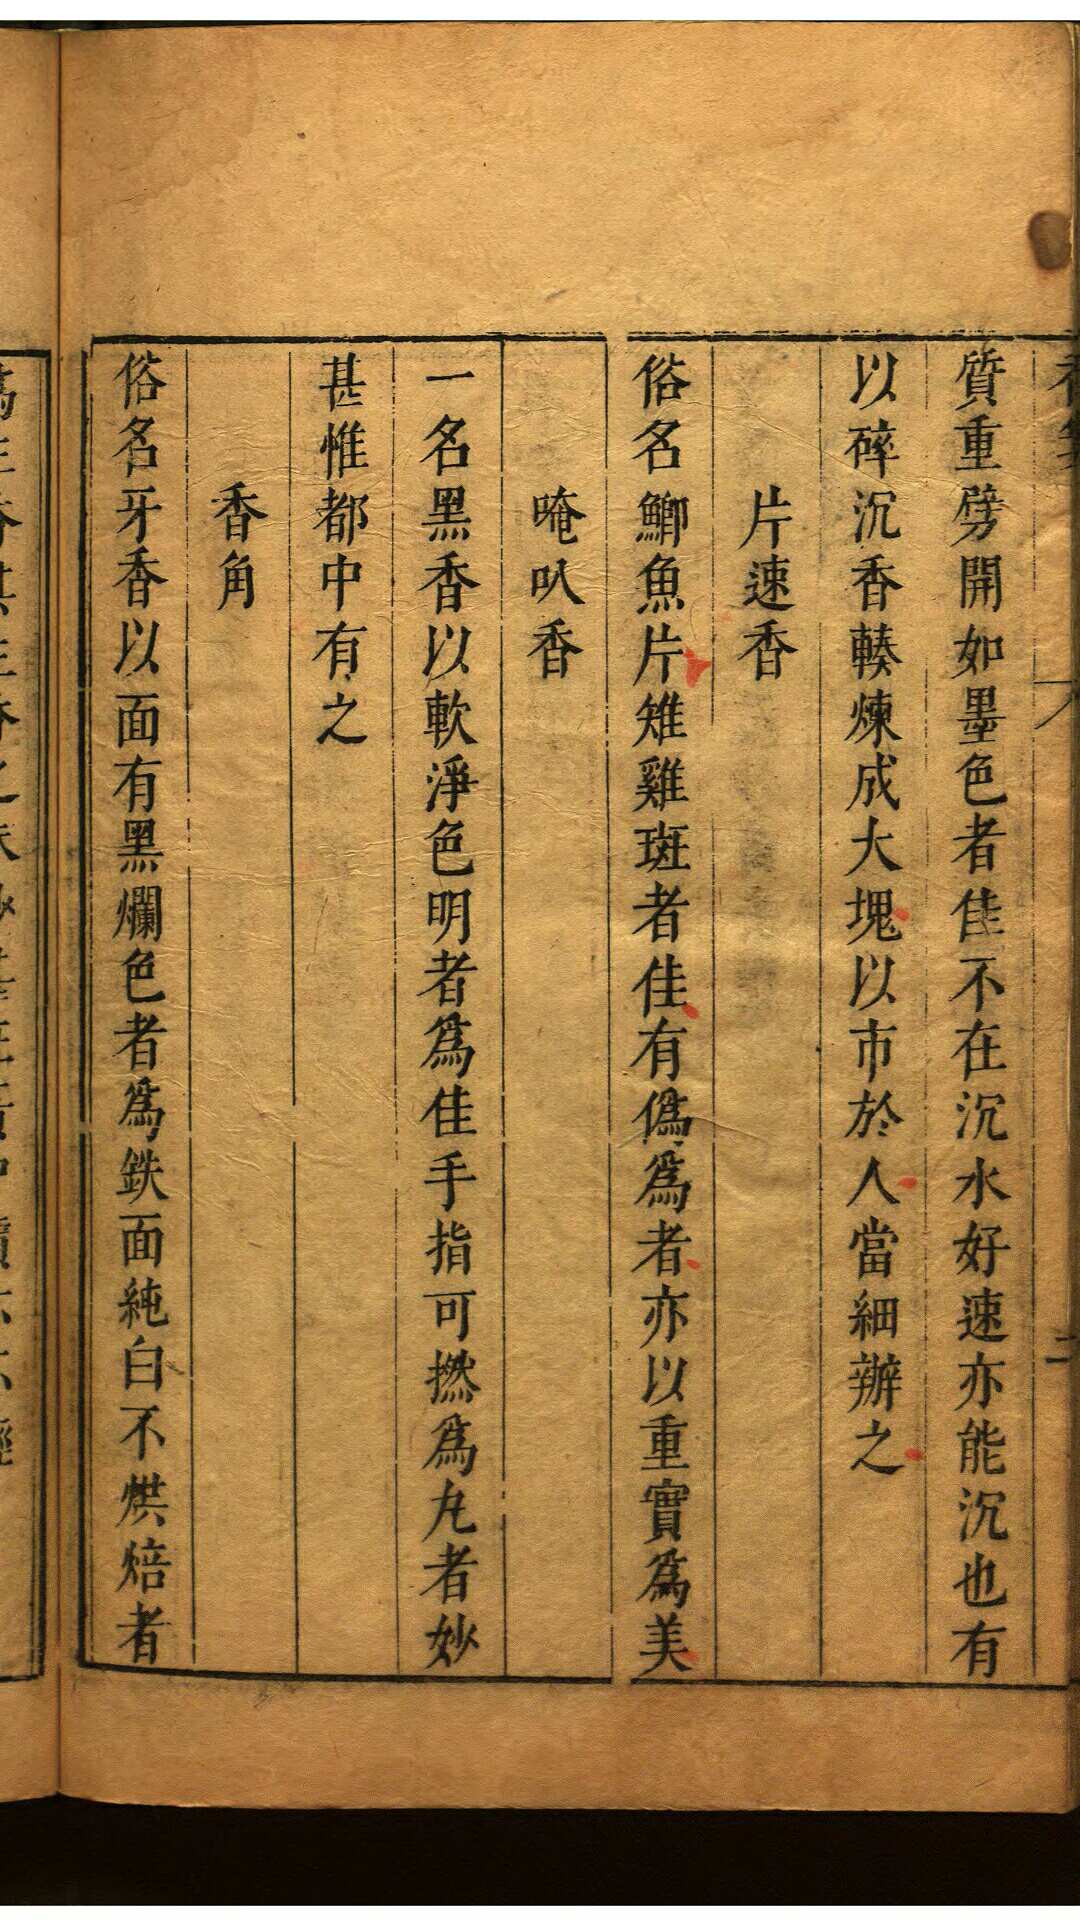 質重劈開如墨色者佳不在沉水好速亦能沉也有
以碎沉香輳煉成大塊以市於人當細辦之
片速香
俗名鯽魚片雉雞斑者佳有僞爲者亦以重實爲美
唵叭香
一名黑香以軟淨色明者爲佳手指可撚爲丸者妙
甚惟都中有之
香角
俗名牙香以面有黑爛色者爲鉄面純白不烘焙者